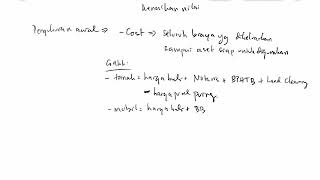 kenaikan nilai
Pengukuran awal => - Cost => seluruh biaya yg dikeluarkan
sampai aset siap untuk digunakan
- tanah = harga beli + Notaris + BPHTB + Land Clearing
- harga
- mobil = harga beli + BB